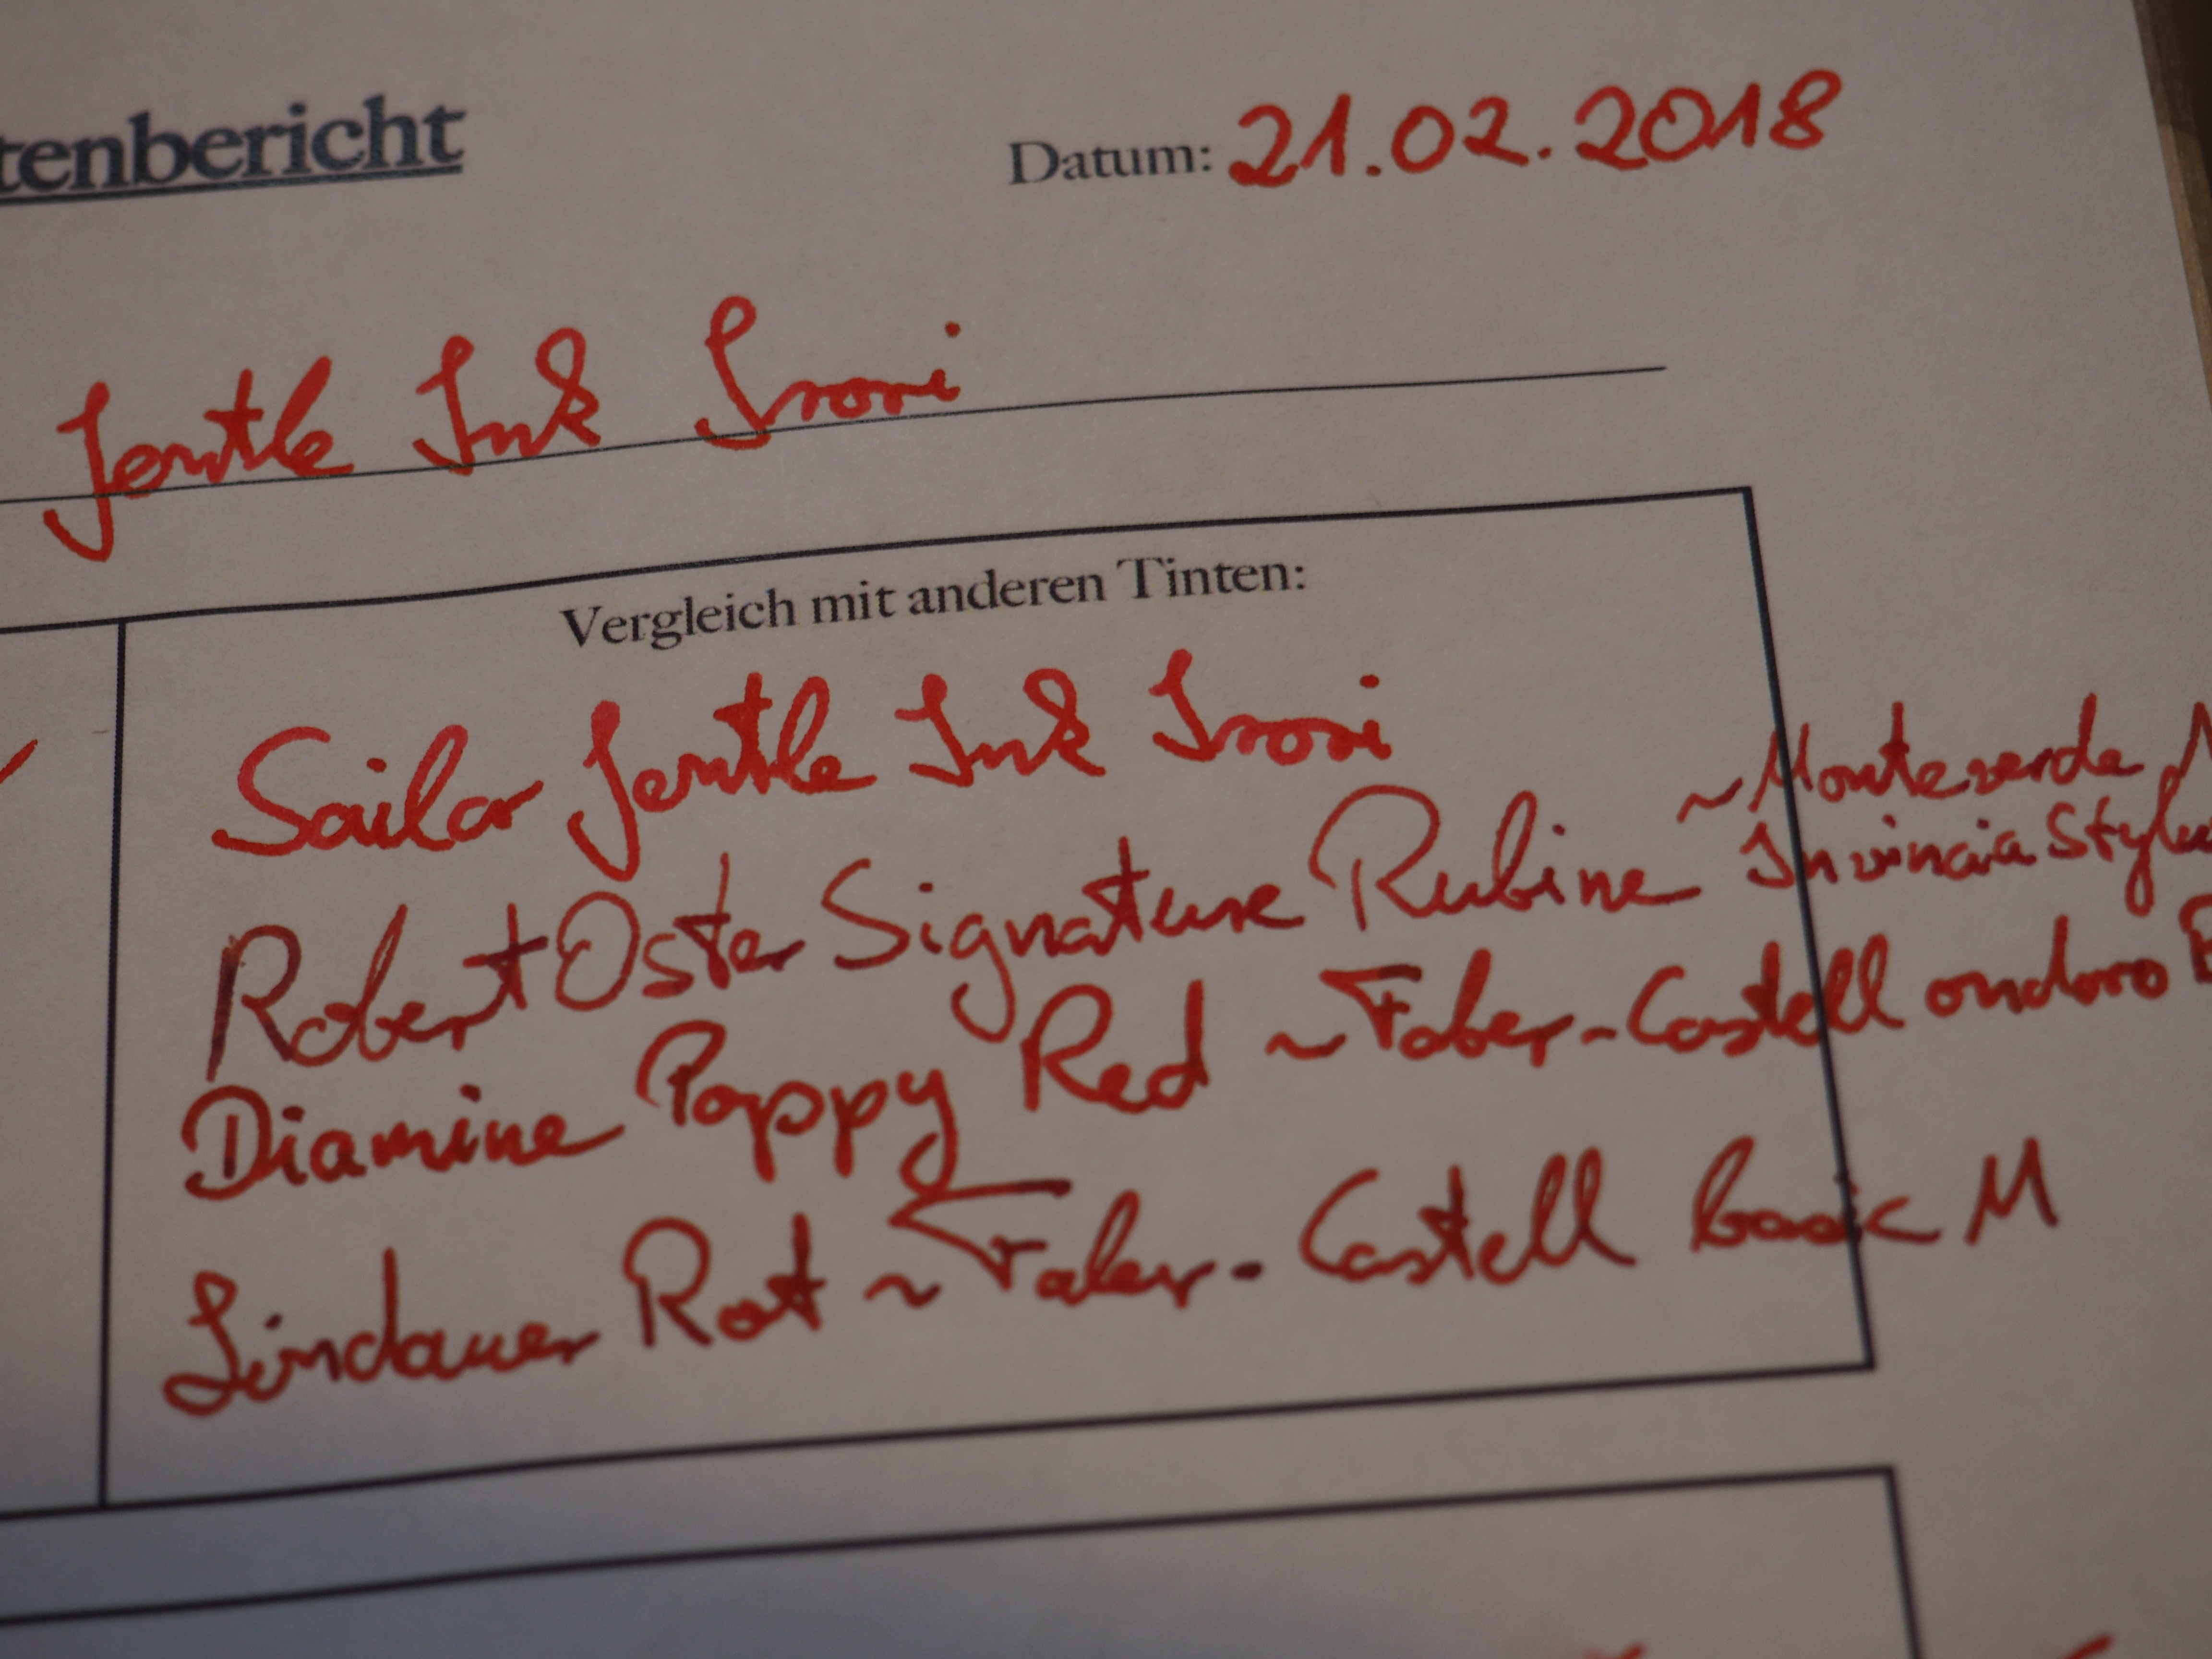 tenbericht
Datum: 21.02.2018
Jentle Ink Irori
Vergleich mit anderen Tinten:
Sailor Jentle Ink Irori
Robert Oster Signature Rubine ~ Monteverde
Invincia Stylus
Diamine Poppy Red ~ Faber-Castell ondoro
Lindauer Rot ~ Faber-Castell basic M